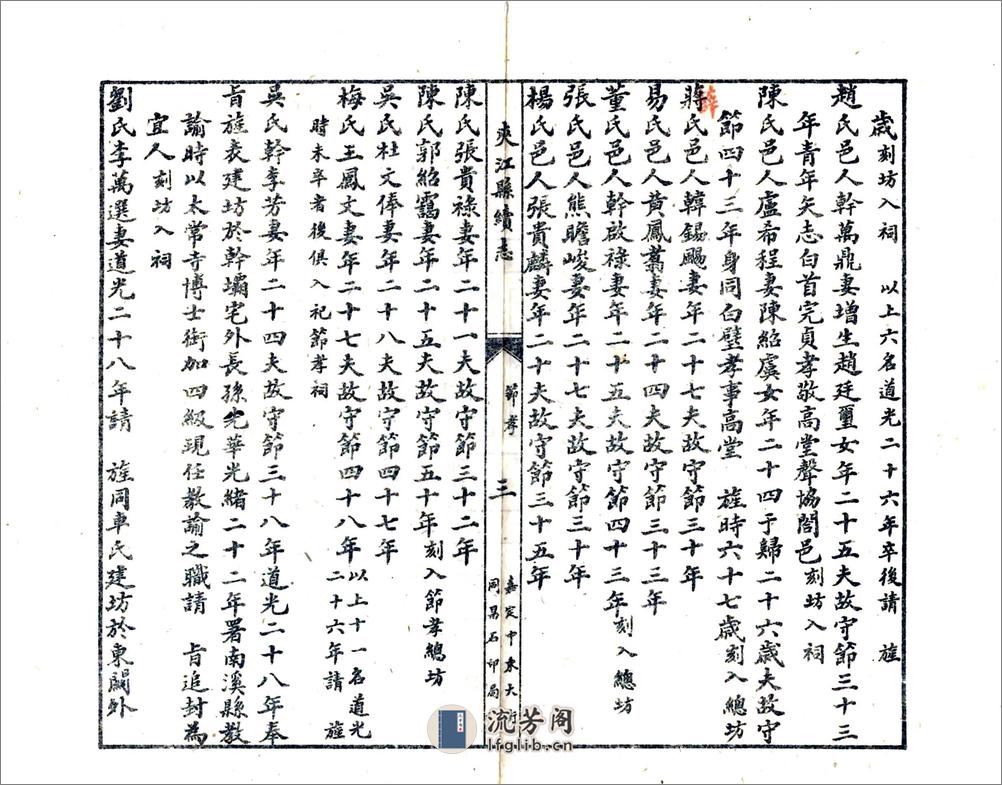 歲刻坊入祠　以上六名道光二十六年卒後請　旌
趙氏邑人幹萬鼎妻增生趙廷璽女年二十五夫故守節三十三
年青年矢志白首完貞孝敬高堂聲協閤邑刻坊入祠
陳氏邑人盧希程妻陳紹虞女年二十四于歸二十六歲夫故守
節四十三年身同白璧孝事高堂　旌時六十七歲刻入總坊
蔣氏邑人韓錫颺妻年二十七夫故守節三十年
易氏邑人黃鳳翥妻年二十四夫故守節三十三年
董氏邑人幹啟祿妻年二十五夫故守節四十三年刻入總坊
張氏邑人熊瞻峻妻年二十七夫故守節三十年
楊氏邑人張貴麟妻年二十夫故守節三十五年
夾江縣續志
節孝
三
嘉定中東大街
同昌石印局
陳氏張貴祿妻年二十一夫故守節三十二年
陳氏郭紹靄妻年二十五夫故守節五十年刻入節孝總坊
吳氏杜文俸妻年二十八夫故守節四十七年
梅氏王鳳文妻年二十七夫故守節四十八年以上十一名道光
二十六年請　旌
時未卒者後俱入祀節孝祠
吳氏幹李芳妻年二十四夫故守節三十八年道光二十八年奉
旨旌表建坊於幹壩宅外長孫光華光緒二十二年署南溪縣教
諭時以太常寺博士銜加四級現任教諭之職請　旨追封為
宜人刻坊入祠
劉氏李萬選妻道光二十八年請　旌同車氏建坊於東關外
流芳阁
lfglib.cn